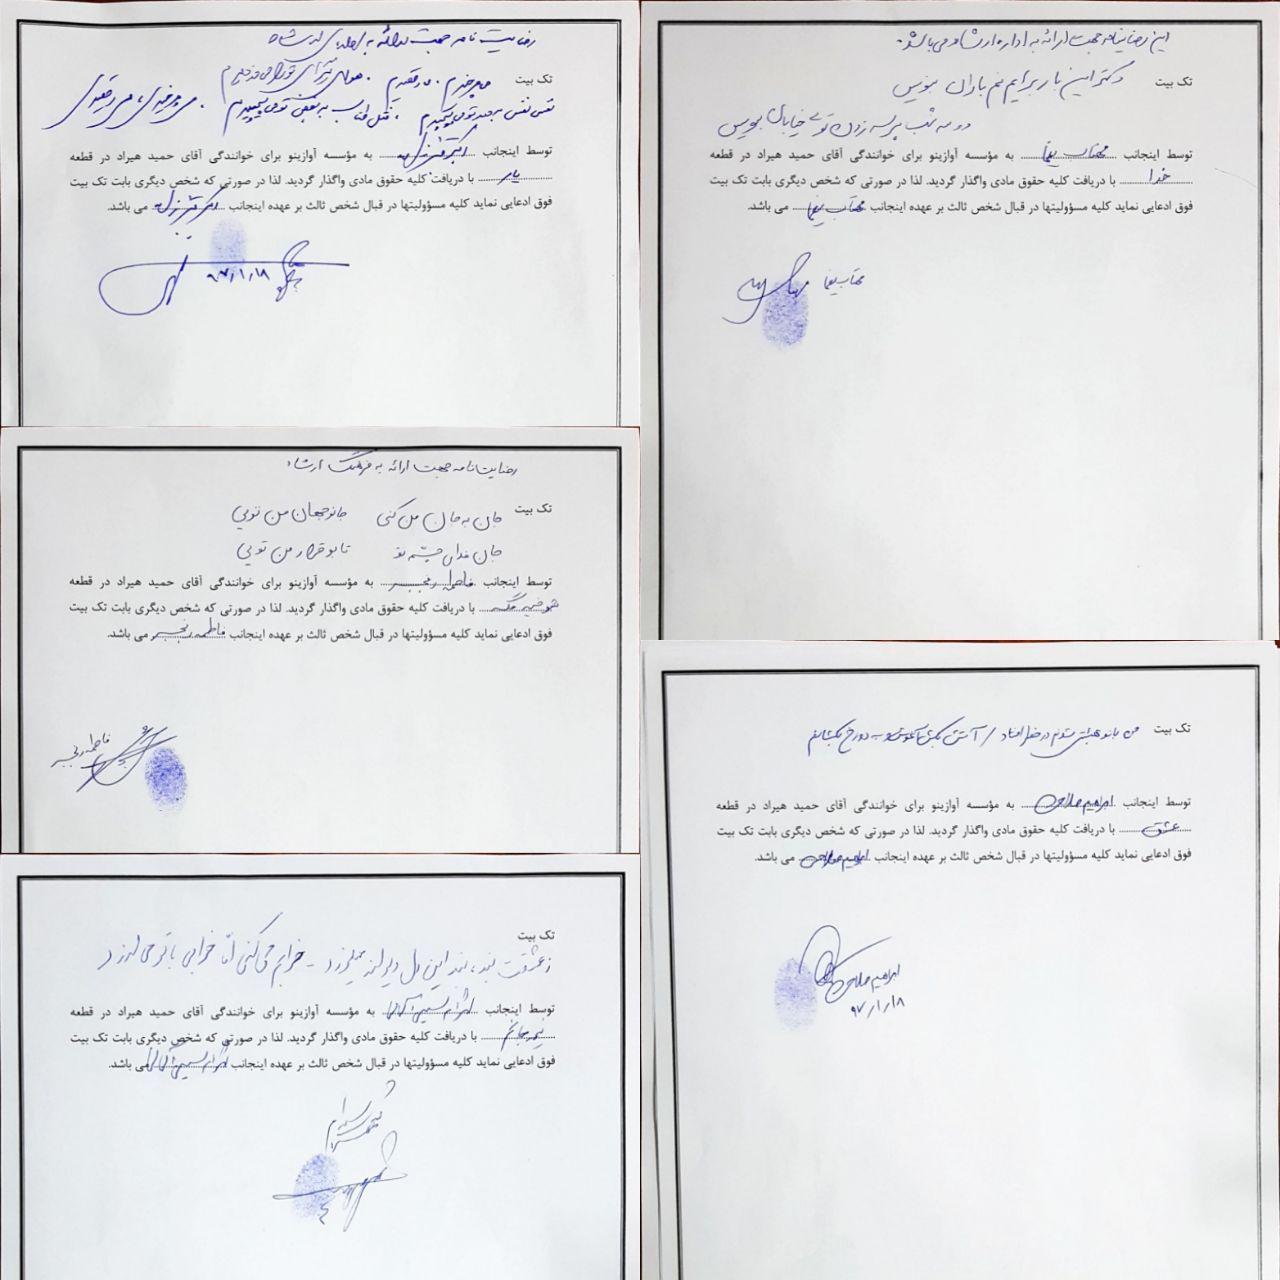 رضایت نامه جهت ارائه به ارشاد
تک بیت
می چرخیدم، می رقصیدم، هوای
نفس نفس به تو می پیچیدم
توسط اینجانب اکبر به مؤسسه آوازینو برای خوانندگی آقای حمید هیراد در قطعه
یار با دریافت کلیه حقوق مادی واگذار گردید. لذا در صورتی که شخص دیگری بابت تک بیت
فوق ادعایی نماید کلیه مسؤولیتها در قبال شخص ثالث بر عهده اینجانب اکبر می باشد.
۹۷/۱/۱۸
این رضایتنامه جهت ارائه به اداره ارشاد می باشد.
تک بیت
دکتر این بار برایم نم باران بنویس
دو سه شب پرسه زدن توی خیابان بنویس
توسط اینجانب مهتاب یغما به مؤسسه آوازینو برای خوانندگی آقای حمید هیراد در قطعه
خدا با دریافت کلیه حقوق مادی واگذار گردید. لذا در صورتی که شخص دیگری بابت تک بیت
فوق ادعایی نماید کلیه مسؤولیتها در قبال شخص ثالث بر عهده اینجانب مهتاب یغما می باشد.
مهتاب یغما
رضایت نامه جهت ارائه به فرهنگ ارشاد
تک بیت
جان به جان من کنی جان و جهان من تویی
جان فدای چشم تو تاب و قرار من تویی
توسط اینجانب فاطمه رنجبر به مؤسسه آوازینو برای خوانندگی آقای حمید هیراد در قطعه
شوخیه مگه با دریافت کلیه حقوق مادی واگذار گردید. لذا در صورتی که شخص دیگری بابت تک بیت
فوق ادعایی نماید کلیه مسؤولیتها در قبال شخص ثالث بر عهده اینجانب فاطمه رنجبر می باشد.
فاطمه رنجبر
تک بیت
من با تو
توسط اینجانب ابراهیم صلاحی به مؤسسه آوازینو برای خوانندگی آقای حمید هیراد در قطعه
عشق با دریافت کلیه حقوق مادی واگذار گردید. لذا در صورتی که شخص دیگری بابت تک بیت
فوق ادعایی نماید کلیه مسؤولیتها در قبال شخص ثالث بر عهده اینجانب ابراهیم صلاحی می باشد.
ابراهیم صلاحی
۹۷/۱/۱۸
تک بیت
ز عشقت بند بند این دل دیوانه میلرزد - خرابم می کنی اما خرابی با تو می ارزد
توسط اینجانب به مؤسسه آوازینو برای خوانندگی آقای حمید هیراد در قطعه
با دریافت کلیه حقوق مادی واگذار گردید. لذا در صورتی که شخص دیگری بابت تک بیت
فوق ادعایی نماید کلیه مسؤولیتها در قبال شخص ثالث بر عهده اینجانب می باشد.